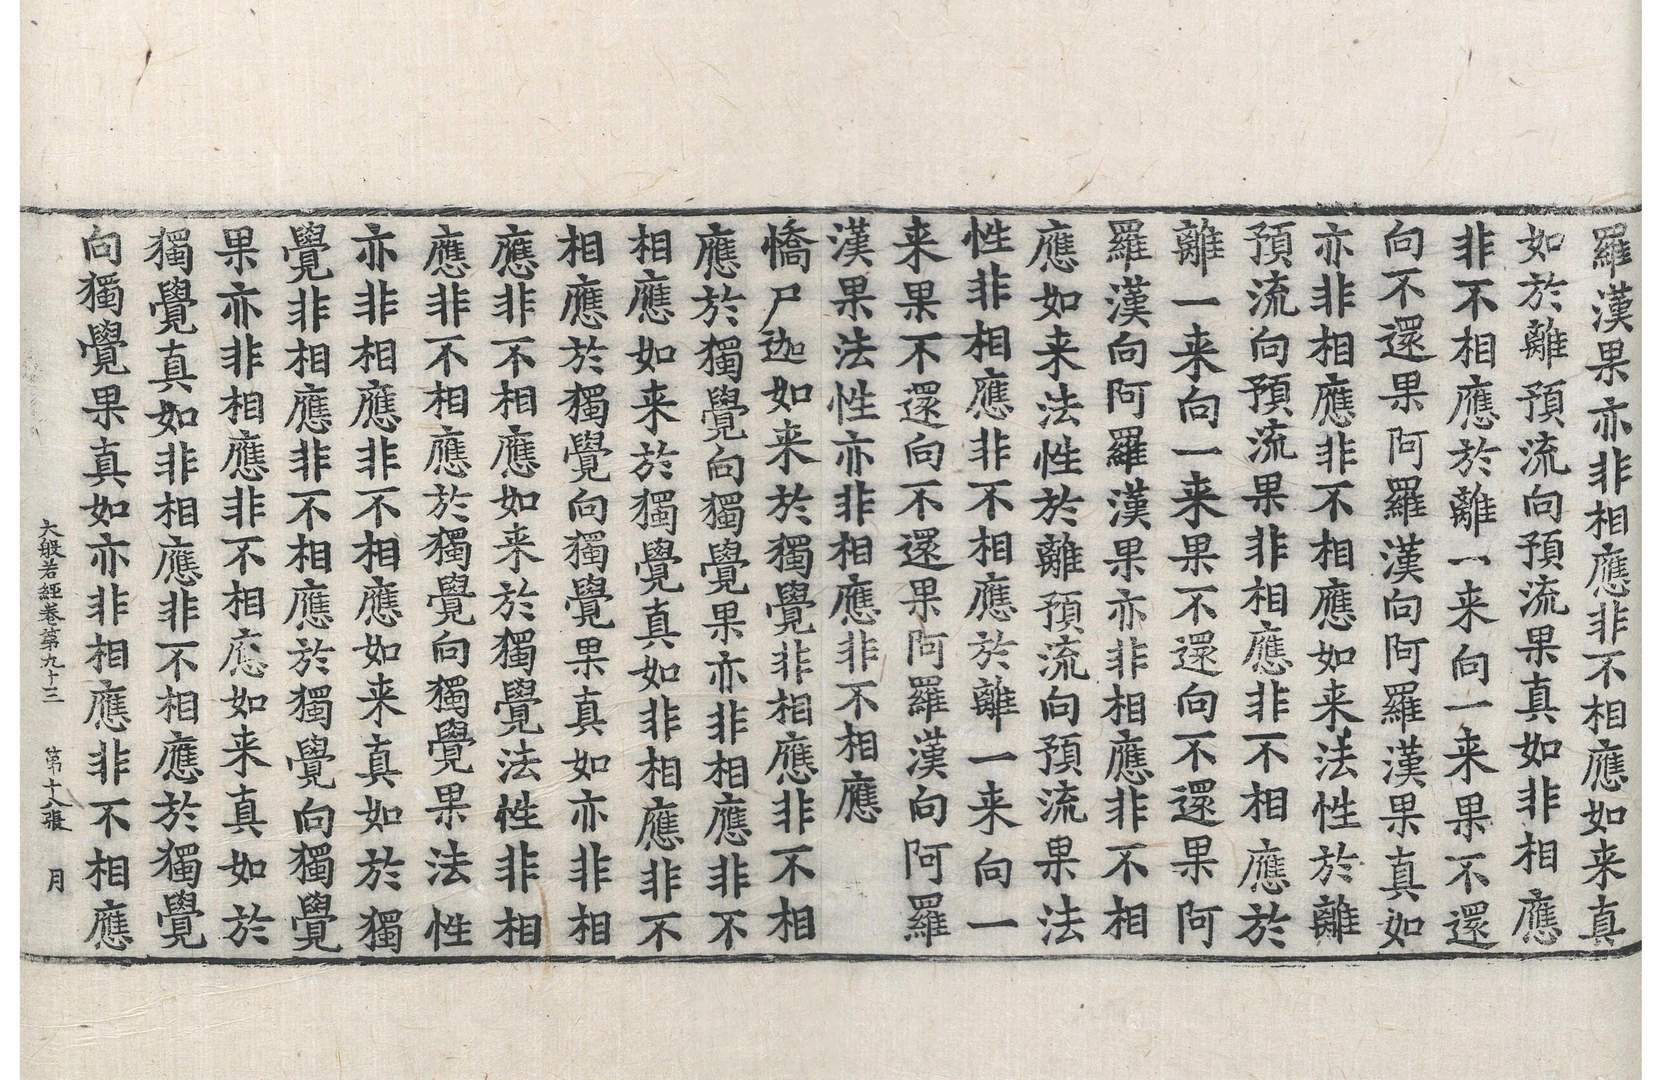 羅漢果亦非相應非不相應如来真
如於離預流向預流果真如非相應
非不相應於離一来向一来果不還
向不還果阿羅漢向阿羅漢果真如
亦非相應非不相應如来法性於離
預流向預流果非相應非不相應於
離一来向一来果不還向不還果阿
羅漢向阿羅漢果亦非相應非不相
應如来法性於離預流向預流果法
性非相應非不相應於離一来向一
来果不還向不還果阿羅漢向阿羅
漢果法性亦非相應非不相應
憍尸迦如来於獨覺非相應非不相
應於獨覺向獨覺果亦非相應非不
相應如来於獨覺真如非相應非不
相應於獨覺向獨覺果真如亦非相
應非不相應如来於獨覺法性非相
應非不相應於獨覺向獨覺果法性
亦非相應非不相應如来真如於獨
覺非相應非不相應於獨覺向獨覺
果亦非相應非不相應如来真如於
獨覺真如非相應非不相應於獨覺
向獨覺果真如亦非相應非不相應
大般若經卷第九十三 第十八張 月